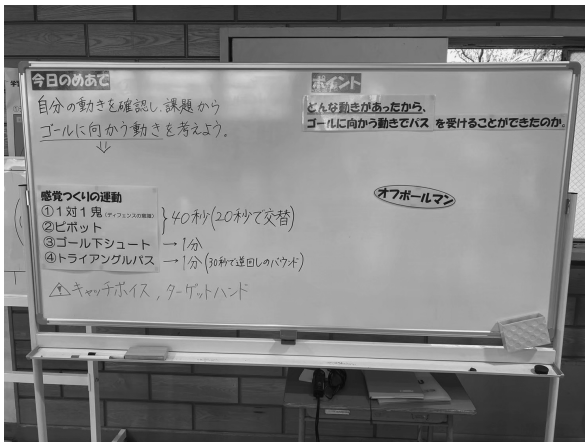 今日のめあて
自分の動きを確認し、課題から
ゴールに向かう動きを考えよう。
⇓
感覚つくりの運動
①1対1鬼(ディフェンスの意識)
②ピボット
}40秒(20秒で交替)
③ゴール下シュート →1分
④トライアングルパス →1分(30秒で逆回しのバウンド)
⚠キャッチボイス,ターゲットハンド
ポイント
どんな動きがあったから、
ゴールに向かう動きでパスを受けることができたのか。
オフボールマン